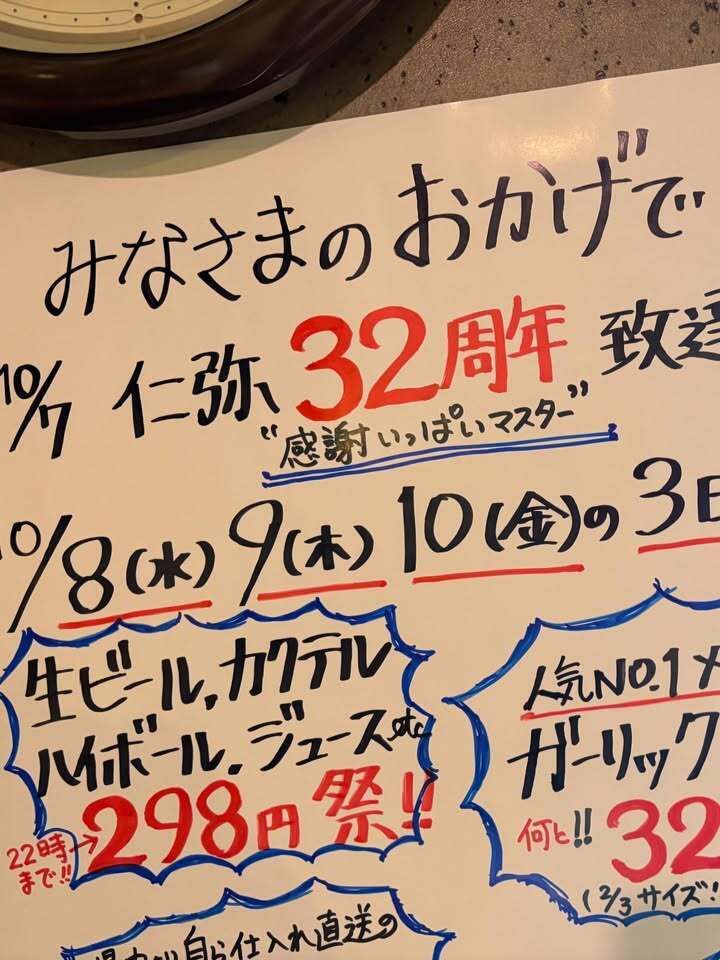 みなさまのおかげで
10/7 仁弥、32周年 致達
"感謝いっぱいマスター"
10/8(水) 9(木) 10(金)の3日
生ビール,カクテル
ハイボール,ジュースetc
22時まで!!→298円 祭!!
人気NO.1メ
ガーリック
何と!! 32
(2/3サイズ!
自ら仕入れ直送の